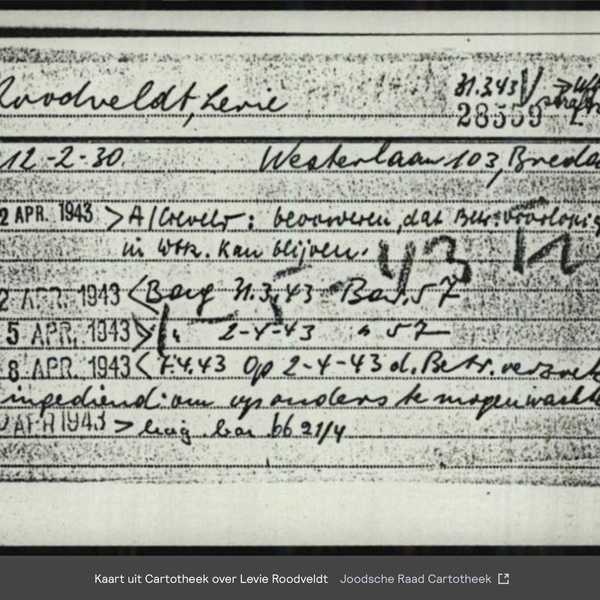 Roodveldt, Levie 31.3.43
28559 L.
12-2-30. Westerlaan 103, Breda
2 APR. 1943 > A/ : bevorderen, dat Betr. voorlopig
in Wtk. kan blijven.
43
2 APR. 1943 < Bag 31.3.43 Bar. 57
5 APR. 1943 > 2-4-43 " 57
8 APR. 1943 < 7.4.43 Op 2-4-43 d. Betr. verzoek
ingediend: om op ouders te mogen wachten
APR 1943 > bar 66 21/4
Kaart uit Cartotheek over Levie Roodveldt Joodsche Raad Cartotheek